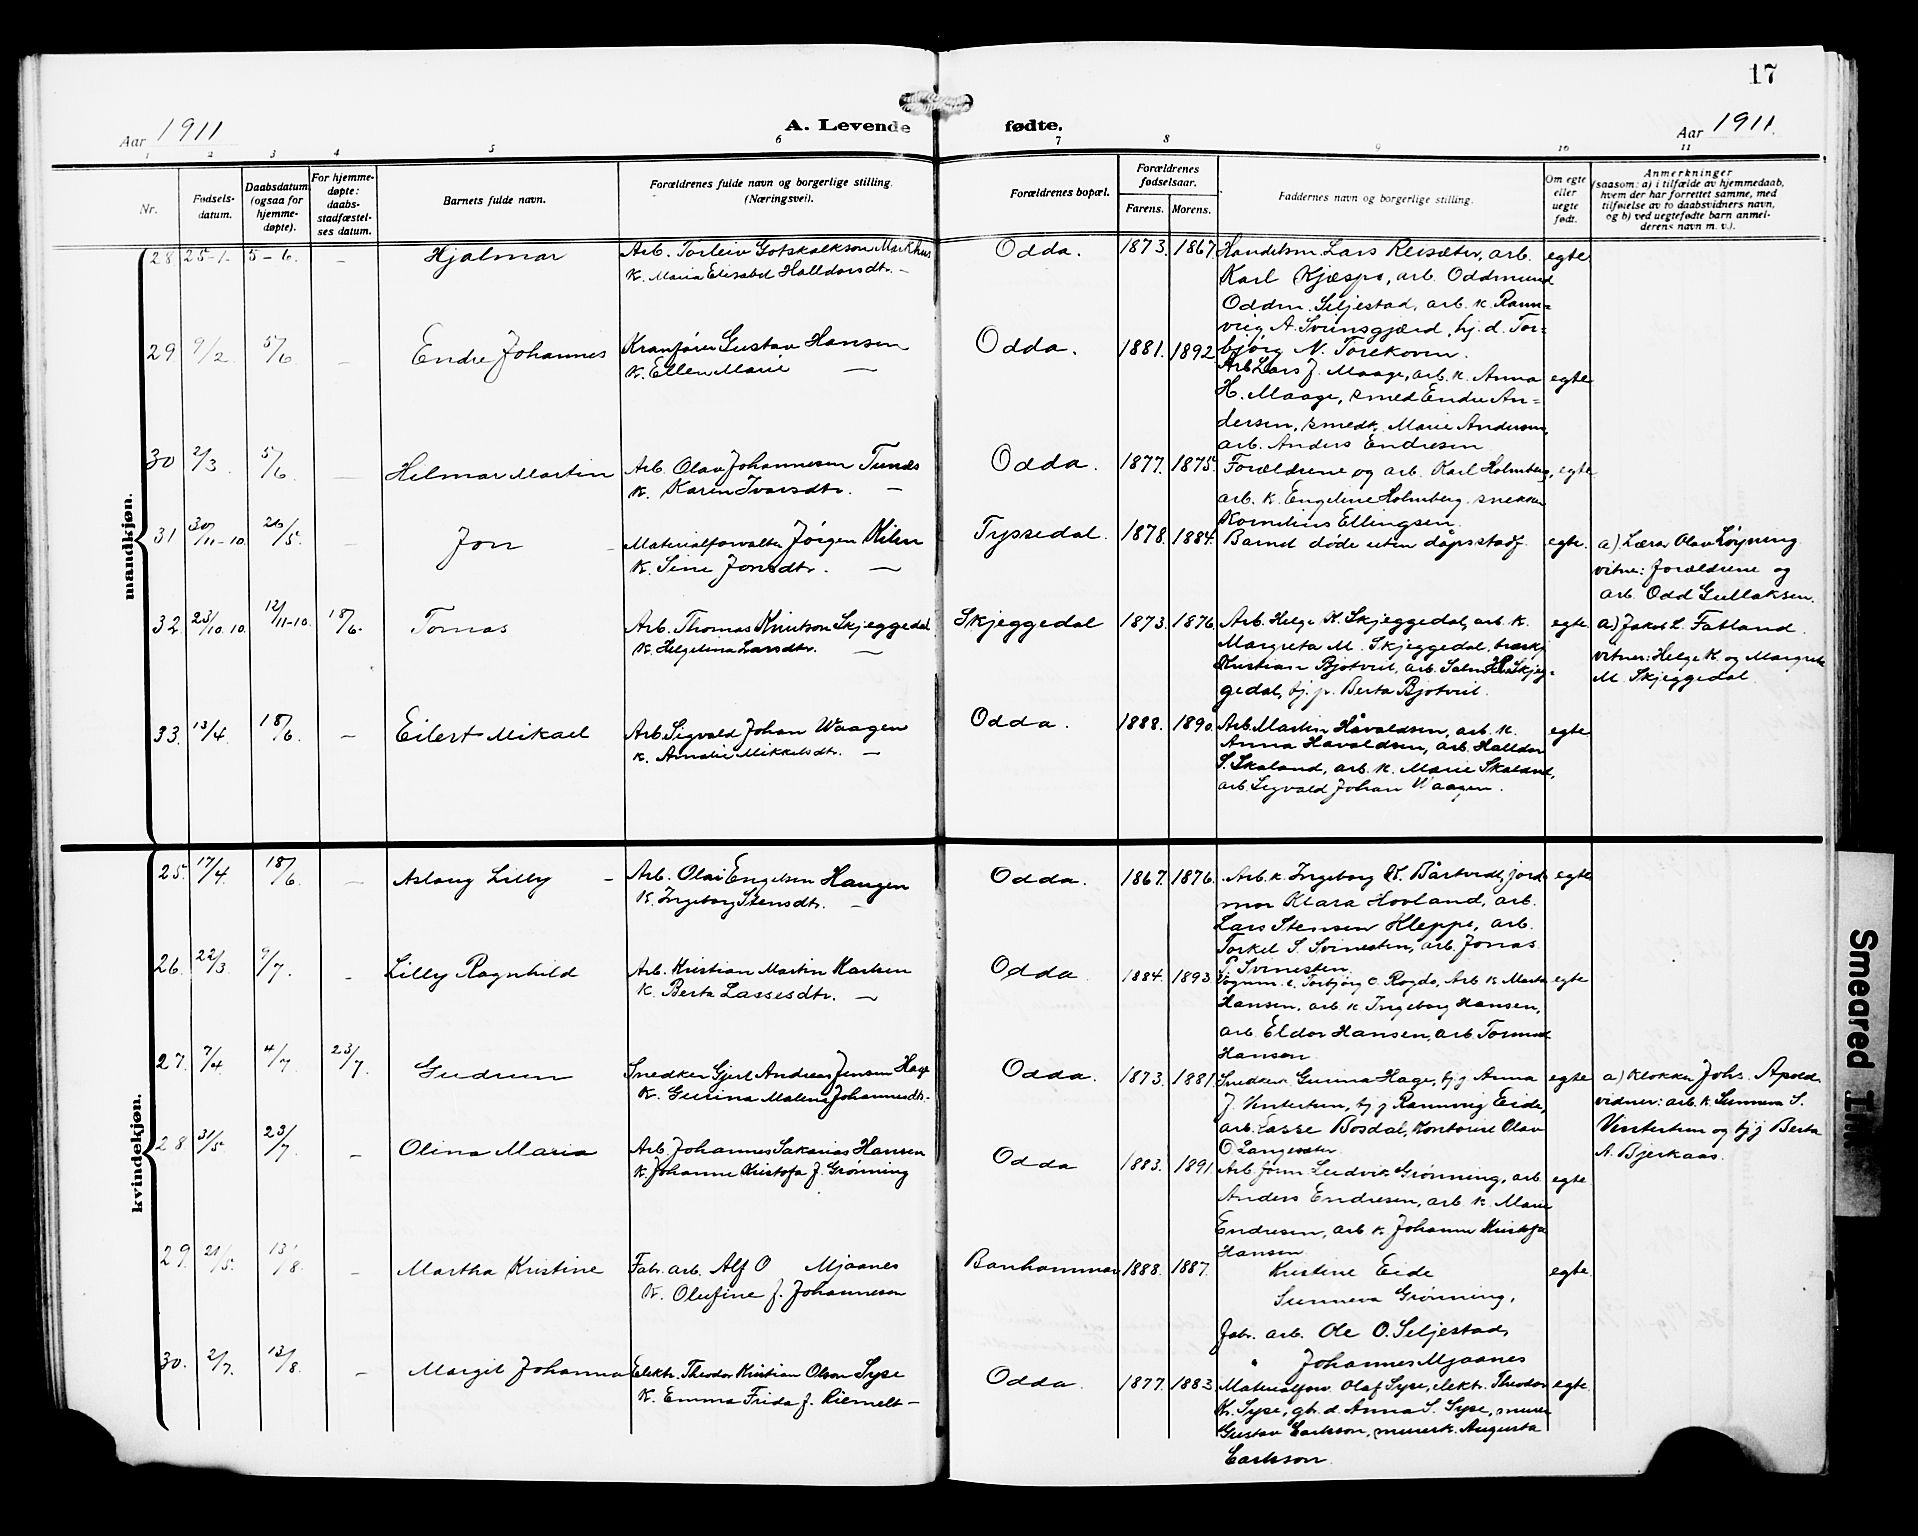 17
Aar 1911
A. Levende fødte.
Aar 1911.
1 2 3 4 5 6 7 8 9 10 11
Nr.
Fødsels-
datum.
Daabsdatum
(ogsaa for
hjemme-
døpte).
For hjemme-
døpte:
daabs-
stadfæstel-
ses datum.
Barnets fulde navn.
Forældrenes fulde navn og borgerlige stilling.
(Næringsvei).
Forældrenes bopæl.
Forældrenes
fødselsaar.
Farens. Morens.
Faddernes navn og borgerlige stilling.
Om egte
eller
uegte
født.
Anmerkninger
(saasom: a) i tilfælde av hjemmedaab,
hvem der har forrettet samme, med
tilføielse av to daabsvidners navn,
og b) ved uegtefødte barn anmel-
derens navn m. v.).
mandkjøn.
28 25-1- 5-6. - Hjalmar
Arb. Torleiv Gotskalkson Markhus
K. Maria Elisabet Halldorsdtr. -
Odda. 1873. 1867.
Handelsm. Lars Reisæter, arb.
Karl Kjæspo, arb. Oddmund
Oddm. Seljestad, arb. k. Rann-
veig A. Svinsgjærd, tj. d. Tor-
bjørg N. Tokekoven.
egte
29 9/2 5/6 - Endre Johannes
Kranfører Gustav Hansen
K. Ellen Marie -
Odda. 1881. 1892.
Arb. Lars J. Maage, arb. k. Anna
H. Maage, smed Endre An-
dersen, smedk. Marie Andersen,
arb. Anders Endresen
egte
30 2/3. 5/6. - Helmar Martin
Arb. Olav Johannesen Tunds
K. Karen Ivarsdtr. -
Odda. 1877. 1875.
Forældrene og arb. Karl Holmberg,
arb. k. Engeline Holmberg. snekker
Kornelius Ellingsen.
egte
31 30/11-10. 26/5. - Jon -
Materialforvalter Jørgen Kilen
K. Sine Jonsdtr. -
Tyssedal. 1878. 1884.
Barnet døde uten dåpsstadf.
egte.
a) Lærer Olav Løyning
vitne: forældrene og
arb. Odd Gullaksen.
32 23/10.10. 12/11-10. 18/6. Tomas
Arb. Thomas Knutson Skjeggedal
K. Helgelina Larsdtr. -
Skjeggedal 1873. 1876.
Arb. Helge K. Skjeggedal, arb. k.
Margreta M. Skjeggedal,
Kristian Bjotveit, arb. Skjeg-
gedal, tj. p. Berta Bjotveit.
egte
a) Jakob L. Fatland.
vitner: Helge K. og Margrete
M. Skjeggedal.
33. 13/4. 18/6. - Eilert Mikael
Arb. Sigvald Johan Waagen
K. Amalie Mikkelsdtr. -
Odda. 1888. 1890.
Arb. Martin Håvaldsen, arb. k.
Anna Håvaldsen, arb. Halldor
S. Skaland, arb. k. Marie Skaland,
arb. Sigvald Johan Waagen.
egte
kvindekjøn.
25. 17/4. 18/6. - Aslaug Lilly -
Arb. Olai Engelsen Haugen
K. Ingeborg Stensdtr. -
Odda. 1867. 1876.
Arb. k. Ingeborg K. Bårtveit, jord-
mor Klara Hovland, arb.
Lars Stensen Kleppe, arb.
Torkel S. Svinesten, arb. Jonas
T. Svinesten.
egte
26. 22/3. 9/7. - Lilly Ragnhild
Arb. Kristian Martin Karlsen
K. Berta Lassesdtr. -
Odda 1884. 1893
Torbjørg O. Rogde, Arb. k. Marta
Hansen, arb. k. Ingeborg Hansen,
arb. Eldor Hansen, arb. Tormod
Hansen
egte
27. 7/4. 4/7. 23/7. Gudrun
Snedker Gjert Andreas Jensen Hage
K. Gurina Malena Johannesdtr.-
Odda. 1873. 1881
Snedker. Gunna Hage, tj. j Anna
J. Vintertun, tj. j Rannveig Eide,
arb. Lasse Bosdal, Kontorist Olav
O. Langesæter.
egte
a) Klokker Johs. Apold
vidner: arb. k. Sunneva S.
Vintertun og tj. j Berta
A. Bjerkaas.
28. 31/5. 23/7. - Olina Maria
Arb. Johannes Sakarias Hansen
K. Johanne Kristofa J. Grønning
Odda 1883. 1891
Arb. form. Ludvik Grønning, arb.
Anders Endresen, arb. k. Marie
Endresen, arb. k. Johanne Kristofa
Hansen.
egte
29. 21/5. 13/8. - Martha Kristine
Fab. arb. Alf O Mjaanes
K. Olufine f. Johannesen
Banhammar 1888. 1887.
Kristine Eide
Sunneva Grønning,
Fabr. arb. Ole O. Seljestad,
" Johannes Mjaanes
egte
30. 2/7. 13/8. - Margit Johanna
Elektr. Theodor Kristian Olson Syse
K. Emma Frida f. Riemelt -
Odda. 1877. 1883.
Materialforv. Olaf Syse, elektr. Theodor
K. Syse, gb. d. Anna S. Syse, murer
Gustav Carlsson, murerk. Augusta
Carlsson.
egte.
Smeared